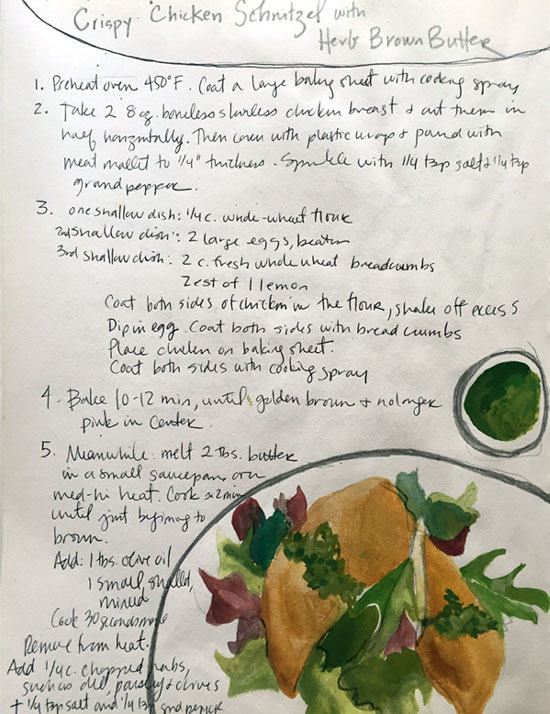 Crispy Chicken Schnitzel with
Herb Brown Butter
1. Preheat oven 450°F. Coat a large baking sheet with cooking spray
2. Take 2 8oz. boneless skinless chicken breast & cut them in
half horizontally. Then cover with plastic wrap & pound with
meat mallet to 1/4" thickness. Sprinkle with 1/4 tsp salt & 1/4 tsp
ground pepper.
3. one shallow dish: 1/4 c. whole-wheat flour
2nd shallow dish: 2 large eggs, beaten
3rd shallow dish: 2 c. fresh whole wheat breadcrumbs
Zest of 1 lemon
Coat both sides of chicken in the flour, shake off excess
Dip in egg. Coat both sides with bread crumbs
Place chicken on baking sheet.
Coat both sides with cooking spray
4. Bake 10-12 min, until golden brown & no longer
pink in center
5. Meanwhile: melt 2 tbs. butter
in a small saucepan, over
med-hi heat. Cook 2 min
until just beginning to
brown.
Add: 1 tbs. olive oil
1 small shallot,
minced
Cook 30 seconds more
Remove from heat.
Add 1/4 c. chopped herbs,
such as dill, parsley & chives
+ 1/4 tsp salt and 1/4 tsp grnd pepper